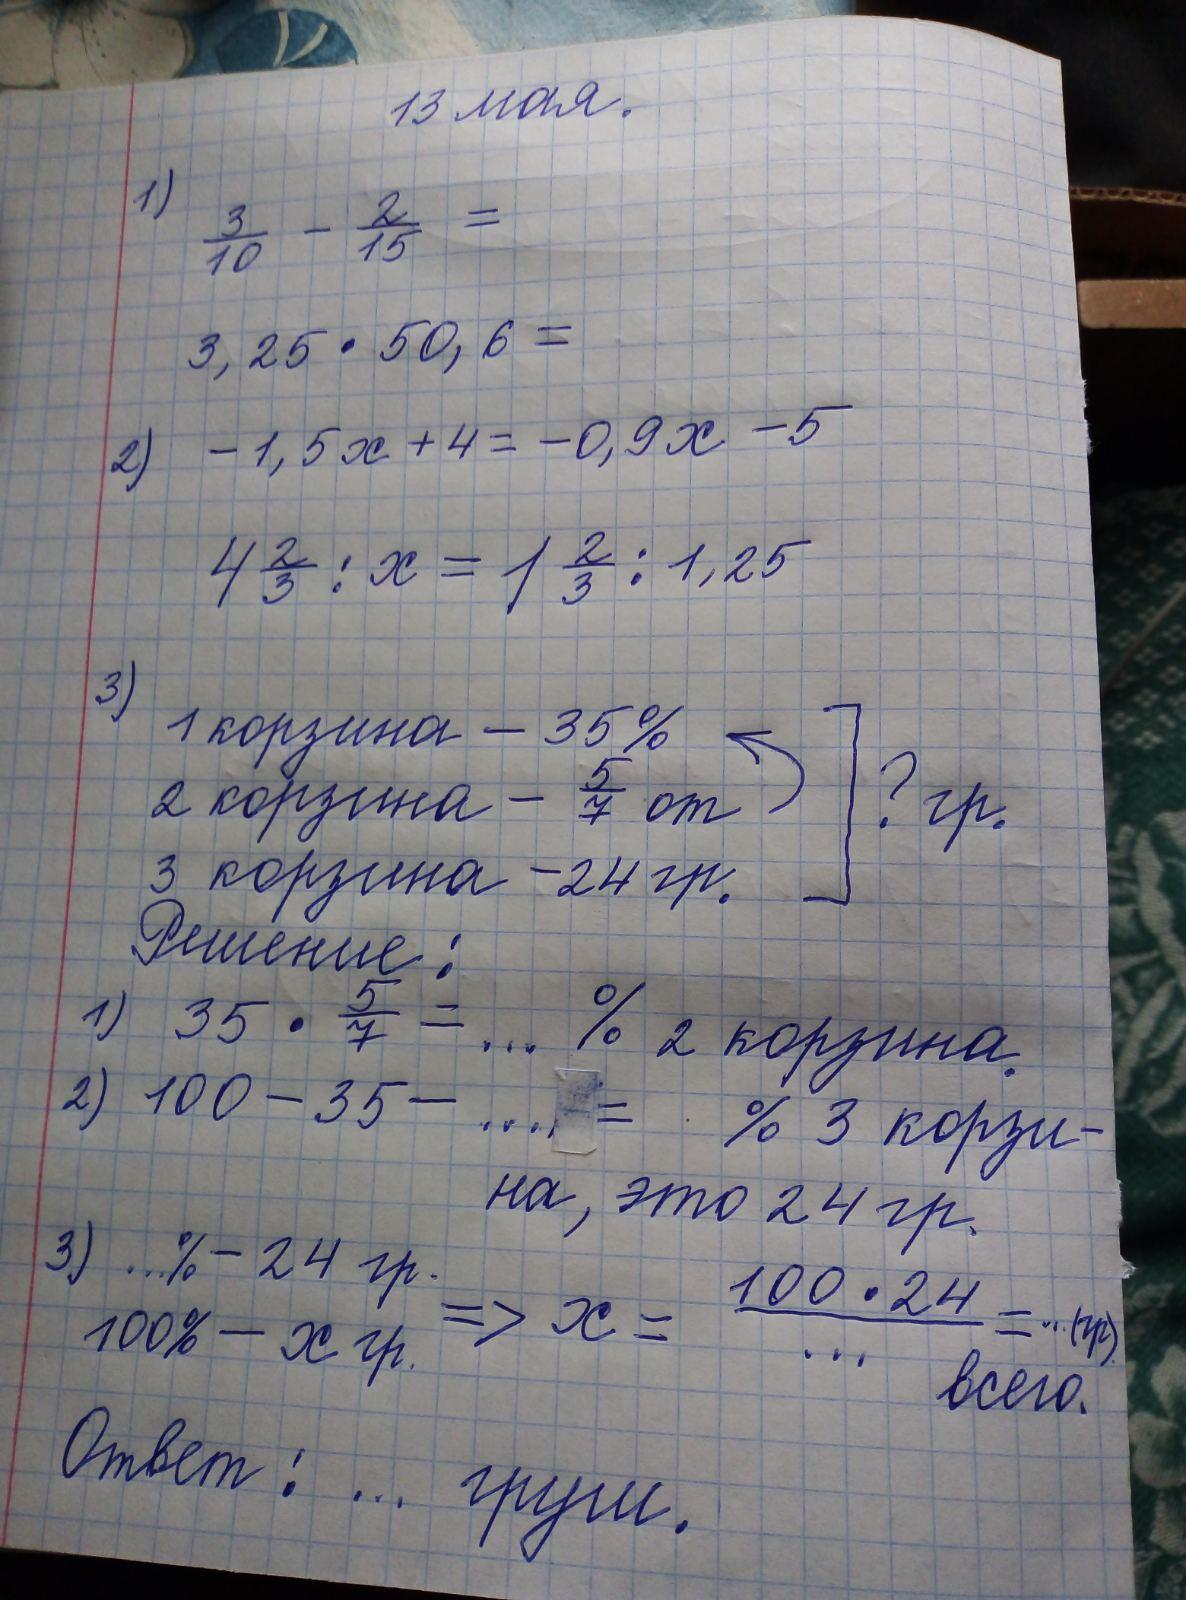 13 мая.
1) 3/10 - 2/15 =
3,25 • 50,6 =
2) -1,5x + 4 = -0,9x - 5
4 2/3 : x = 1 2/3 : 1,25
3)
1 корзина - 35%
2 корзина - 5/7 от
3 корзина - 24 гр.
? гр.
Решение:
1) 35 • 5/7 = ... % 2 корзина.
2) 100 - 35 - .... = % 3 корзи-
на, это 24 гр.
3) ...% - 24 гр.
100% - x гр. => x = 100 • 24/... = ... (гр)
всего.
Ответ: ... груш.